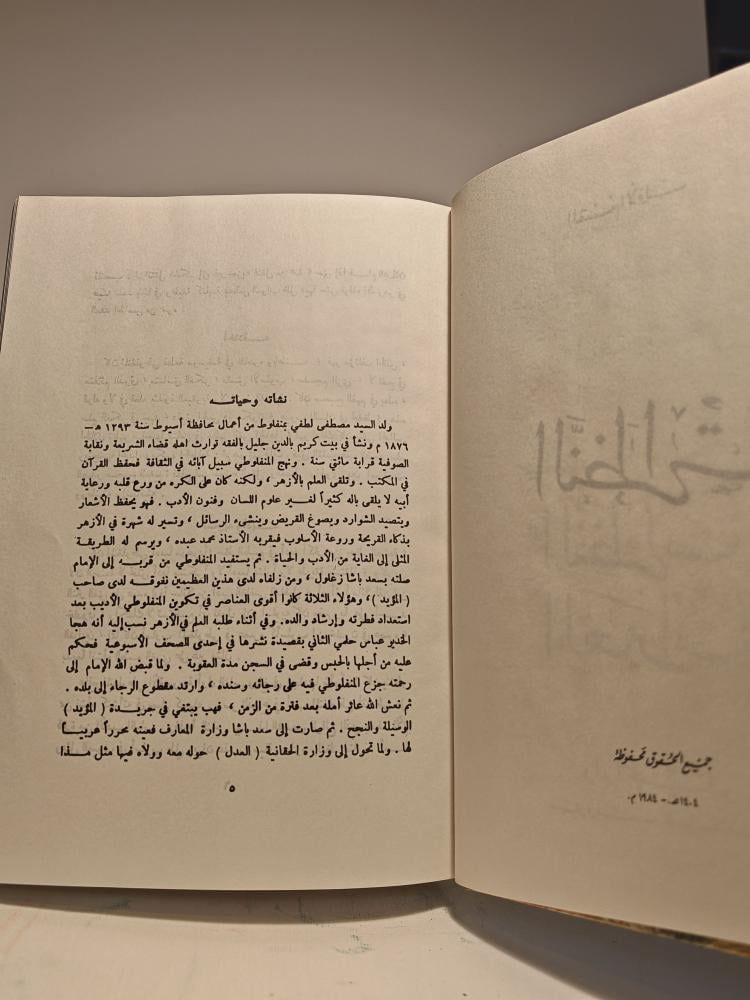 جميع الحقوق محفوظة
١٤٠٤هـ - ١٩٨٤ م.
نشأته وحياتـــه
ولد السيد مصطفى لطفي بمنفلوط من أعمال بمحافظة أسيوط سنة ١٢٩٣ هـ –
١٨٧٦ م ونشأ في بيت كريم بالدين جليل بالفقه توارث اهله قضاء الشريعة ونقابة
الصوفية قرابة مائتي سنة . ونهج المنفلوطي سبيل آبائه في الثقافة فحفظ القرآن
في المكتب . وتلقى العلم بالأزهر ، ولكنه كان على الكره من ورع قلبه ورعاية
أبيه لا يلقى باله كثيراً لغـــير علوم اللسان وفنون الأدب . فهو يحفظ الأشعار
ويتصيد الشوارد ويصوغ القريض وينشىء الرسائل ، وتسير له شهرة في الأزهر
بذكاء القريحة وروعة الأسلوب فيقربه الأستاذ محمد عبده ، ويرسم له الطريقــة
المثلى إلى الغاية من الأدب والحياة . ثم يستفيد المنفلوطي من قربـــه إلى الإمام
صلته بسعد باشا زغلول ، ومن زلفاه لدى هذين العظيمين نفوقـه لدى صاحب
( المؤيد )، وهؤلاء الثلاثة كانوا أقوى العناصر في تكوين المنفلوطي الأديب بعد
استعداد فطرته وإرشاد والده. وفي أثناء طلبه العلم في الأزهر نسب إليه أنه هجا
الخديو عباس حلمي الثاني بقصيدة نشرها في إحدى الصحف الأسبوعية فحكم
عليه من أجلها بالحبس وقضى في السجن مدة العقوبة . ولما قبض الله الإمام إلى
رحمته جزع المنفلوطي فيه على رجائه وسنده ، وارتد مقطوع الرجاء إلى بلده .
ثم نعش الله عاثر أمله بعد فترة من الزمن ، فهب يبتغي في جريـــدة ( المؤيد )
الوسيلة والنجح . ثم صارت إلى سعد باشا وزارة المعارف فعينه محرراً عربيــاً
لها . ولما تحول إلى وزارة الحقانية ( العدل ) حوله معه وولاه فيها مثل هـــذا
٥